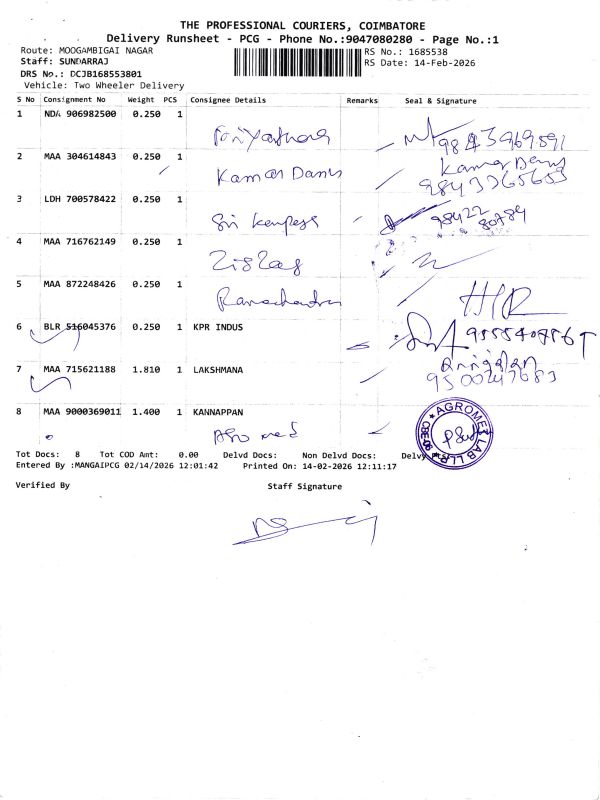 THE PROFESSIONAL COURIERS, COIMBATORE
Delivery Runsheet - PCG - Phone No.:9047080280 - Page No.:1
Route: MOOGAMBIGAI NAGAR
RS No.: 1685538
Staff: SUNDARRAJ
RS Date: 14-Feb-2026
DRS No.: DCJB168553801
Vehicle: Two Wheeler Delivery
S No Consignment No Weight PCS Consignee Details Remarks Seal & Signature
1 NDA 906982500 0.250 1
2 MAA 304614843 0.250 1 Kamar Danus
Kamar Danus
3 LDH 700578422 0.250 1 Sri
98422
80784
4 MAA 716762149 0.250 1 Zigzag
5 MAA 872248426 0.250 1 Ramachandra
6 BLR 516045376 0.250 1 KPR INDUS
7 MAA 715621188 1.810 1 LAKSHMANA
9500247683
8 MAA 9000369011 1.400 1 KANNAPPAN
AGROMED LAB LLP
Tot Docs: 8 Tot COD Amt: 0.00 Delvd Docs: Non Delvd Docs:
Entered By :MANGAIPCG 02/14/2026 12:01:42 Printed On: 14-02-2026 12:11:17
Verified By Staff Signature